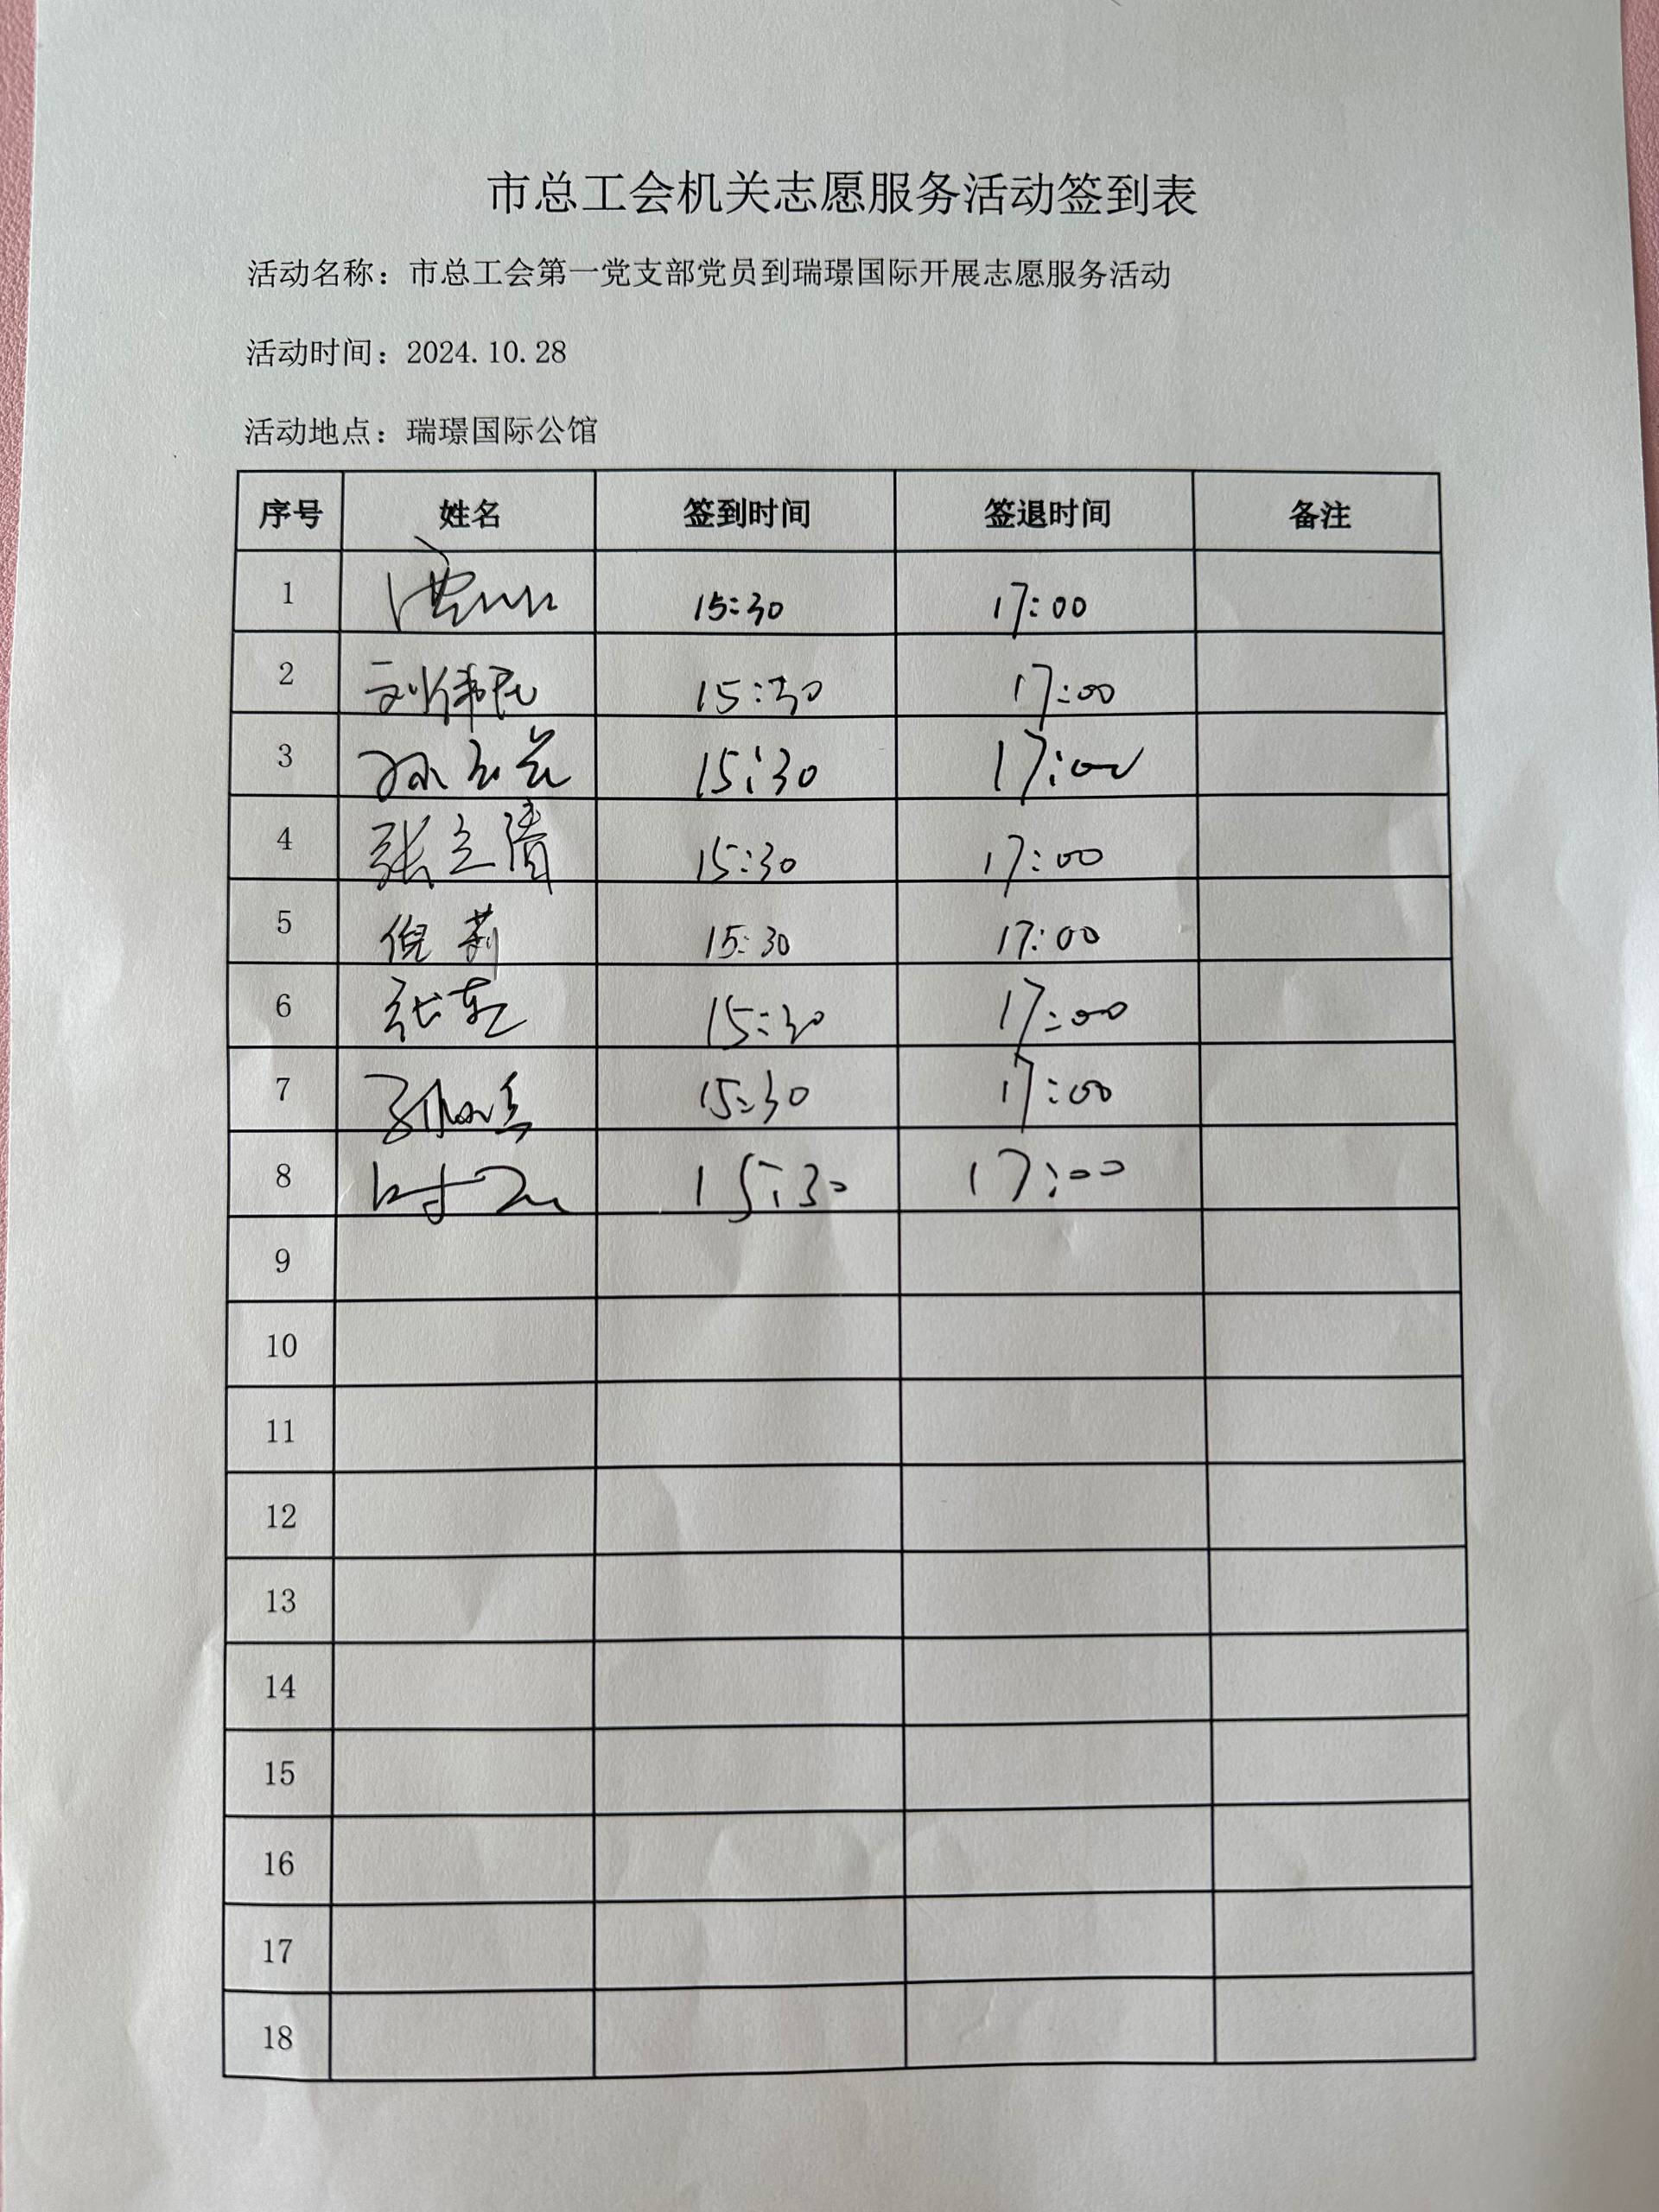 市总工会机关志愿服务活动签到表
活动名称：市总工会第一党支部党员到瑞璟国际开展志愿服务活动
活动时间：2024.10.28
活动地点：瑞璟国际公馆
序号 姓名 签到时间 签退时间 备注
1 15:30 17:00
2 刘伟民 15:30 17:00
3 孙 15:30 17:00
4 张立清 15:30 17:00
5 倪莉 15:30 17:00
6 张 15:30 17:00
7 15:30 17:00
8 时 15:30 17:00
9
10
11
12
13
14
15
16
17
18